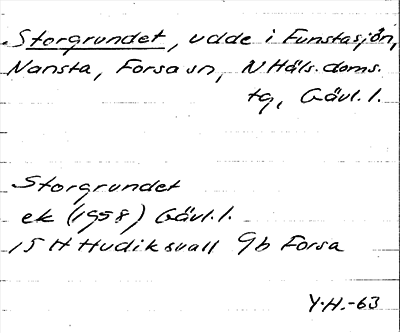 Storgrundet, udde i Funstasjön,
Nansta, Forsa sn, N Häls. doms.
tg, Gävl. l.
Storgrundet
ek (1958) Gävl. l.
15 H Hudiksvall 9b Forsa
Y.H.-63